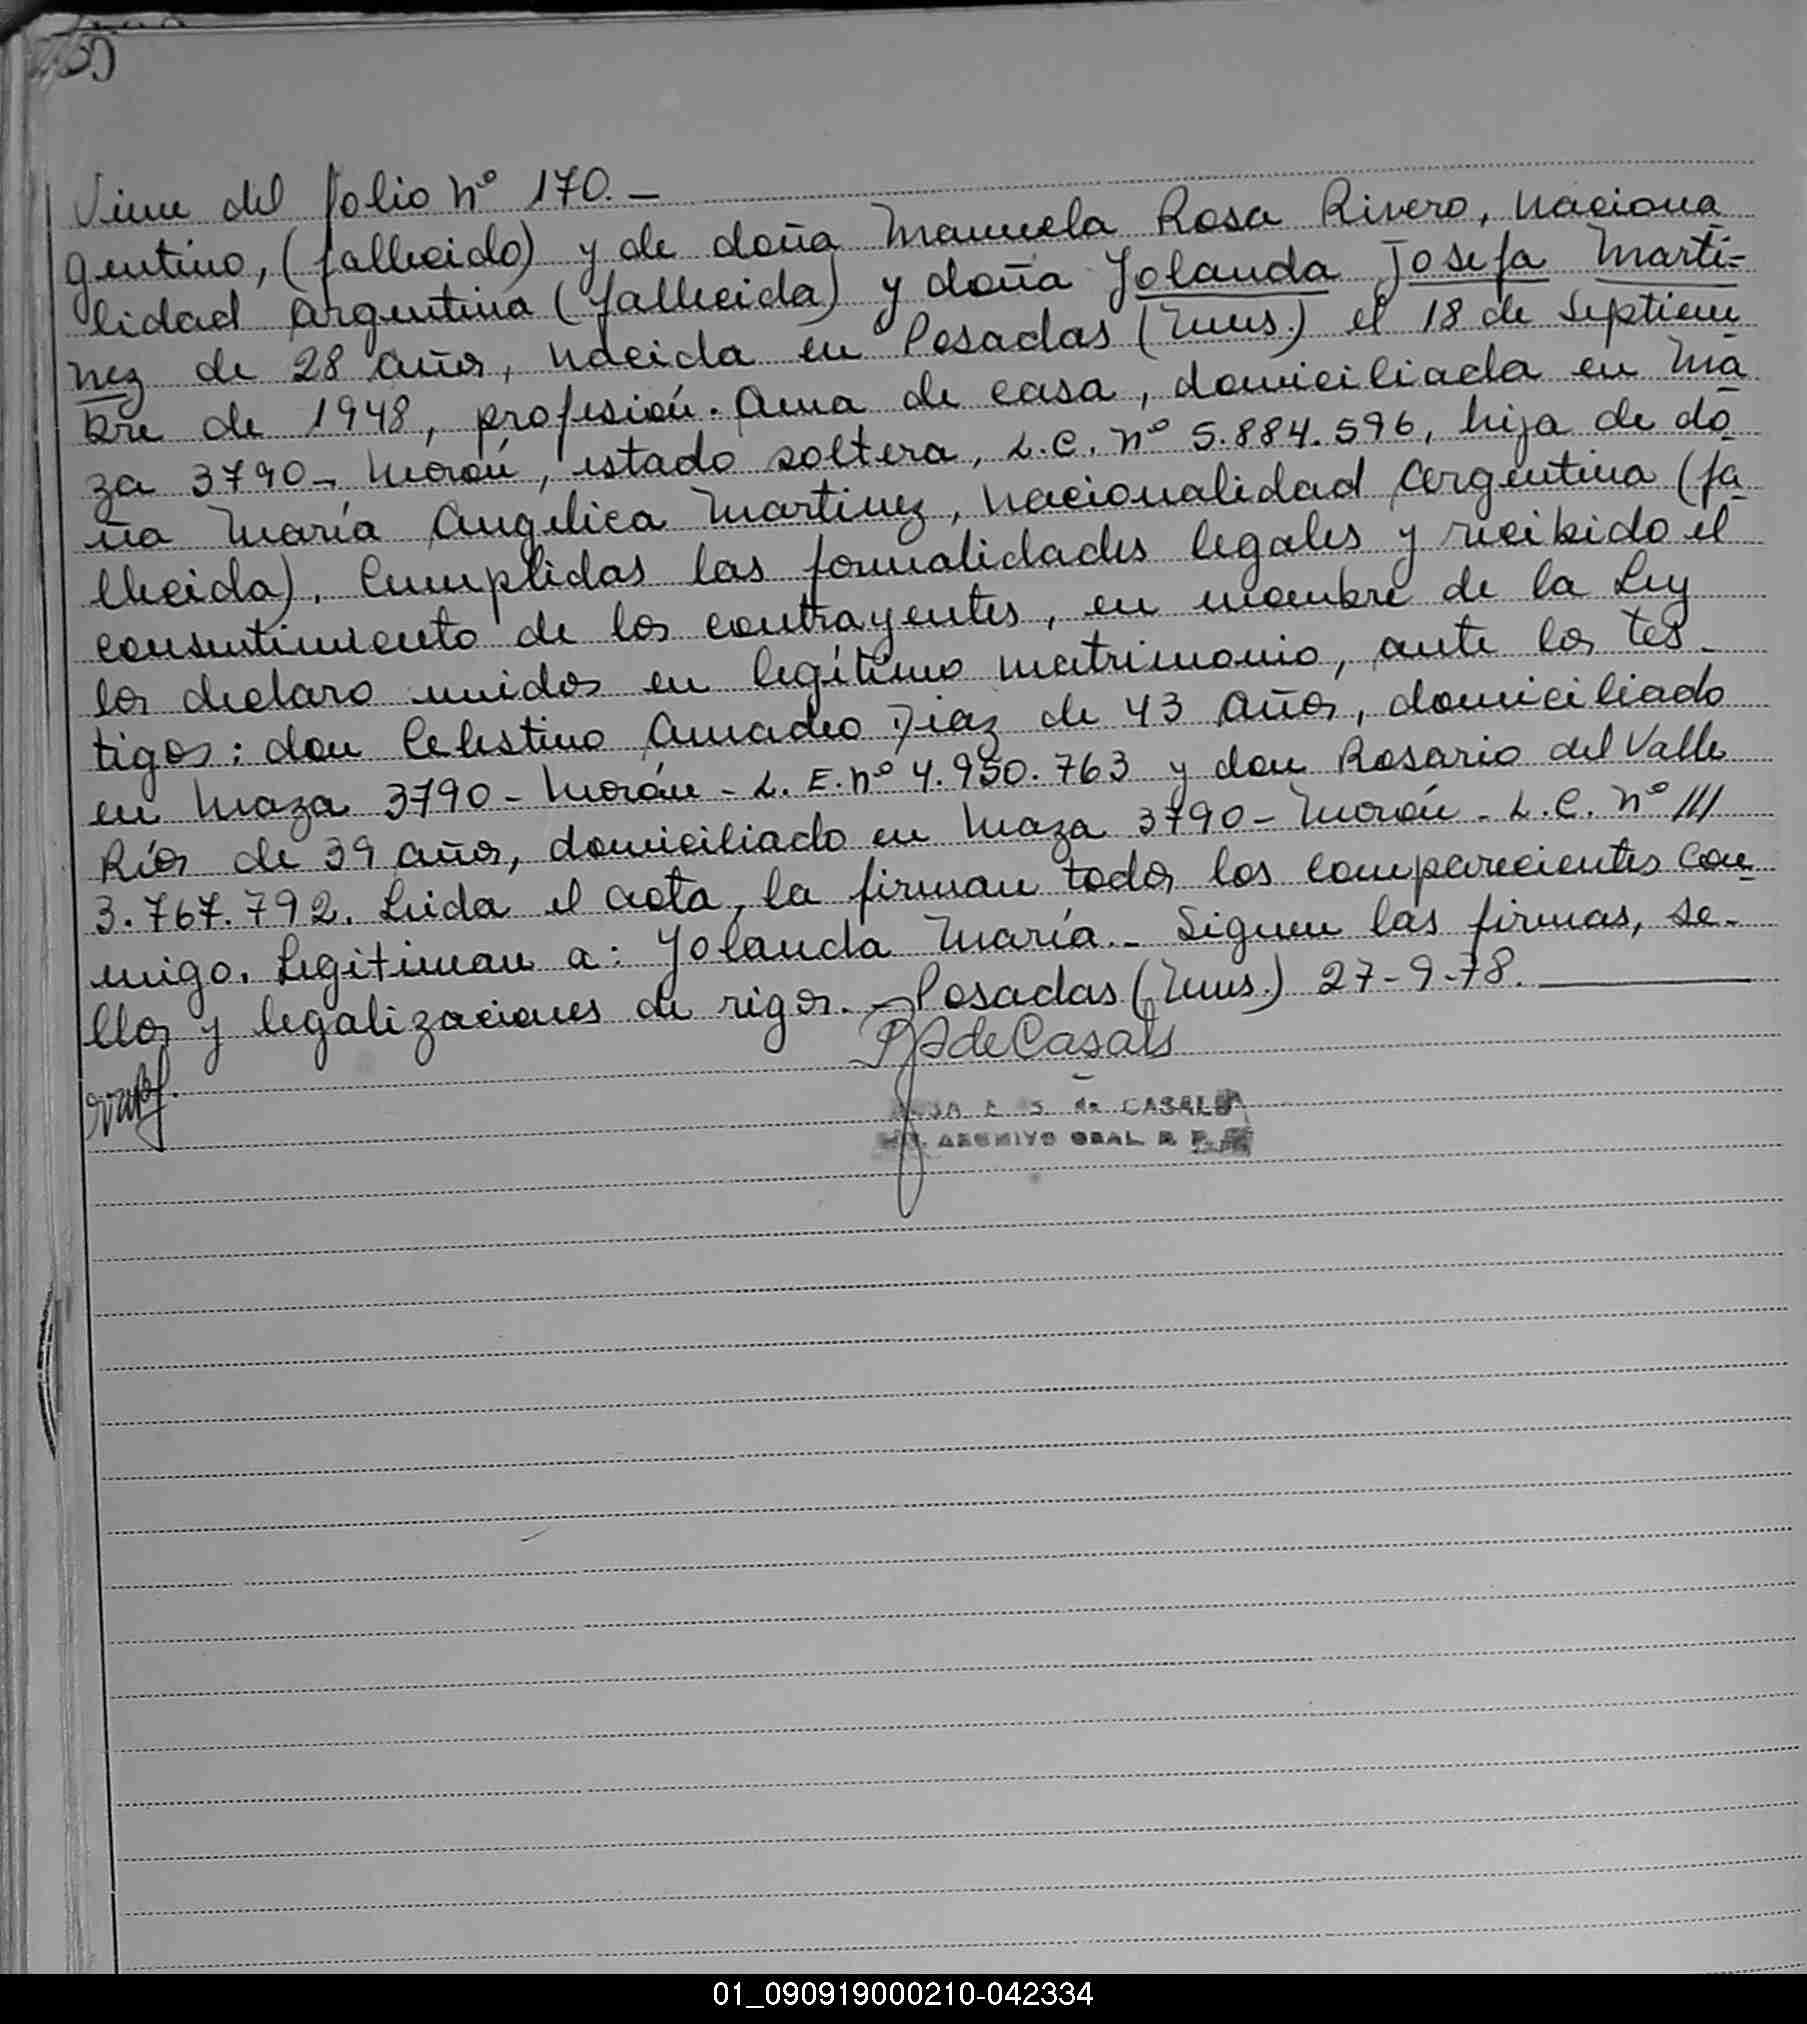 Viene del folio nº 170.-
gentino, (fallecido) y de doña Manuela Rosa Rivero, naciona
lidad Argentina (fallecida) y doña Yolanda Josefa Martí=
nez de 28 años, nacida en Posadas (Mnes.) el 18 de Septiem
bre de 1948, profesión. Ama de casa, domiciliada en Ma
za 3790- Morón, estado soltera, L.C. nº 5.884.596, hija de do
ña María Angelica Martinez, nacionalidad Argentina (fa
llecida). Cumplidas las formalidades legales y recibido el
consentimiento de los contrayentes, en nombre de la Ley
los declaro unidos en legítimo matrimonio, ante los tes-
tigos: don Celestino Amadeo Diaz de 43 años, domiciliado
en Maza 3790- Morón - L.E. nº 4.950.763 y don Rosario del Valle
Ríos de 39 años, domiciliado en Maza 3790- Morón - L.C. nº ///
3.767.792. Leída el acta, la firman todos los comparecientes con
migo. Legitiman a: Yolanda María.- Siguen las firmas, se-
llos y legalizaciones de rigor.- Posadas (Mnes.) 27-9-78.
de Casals
de CASALS
ARCHIVO GRAL R. P.
01_090919000210-042334